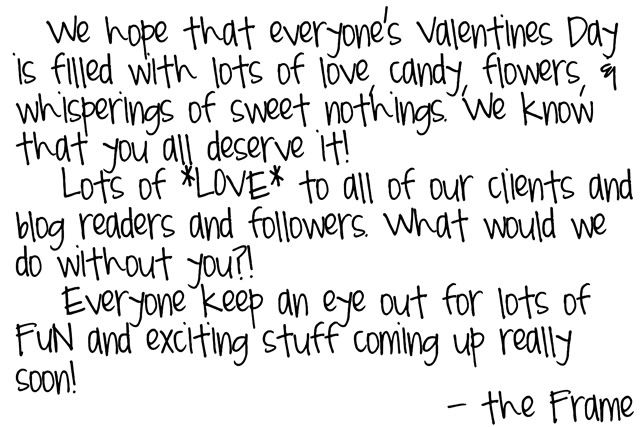 We hope that everyone's Valentines Day
is filled with lots of love, candy, flowers, &
whisperings of sweet nothings. We know
that you all deserve it!
Lots of *LOVE* to all of our clients and
blog readers and followers. What would we
do without you?!
Everyone keep an eye out for lots of
FUN and exciting stuff coming up really
soon!
- the Frame